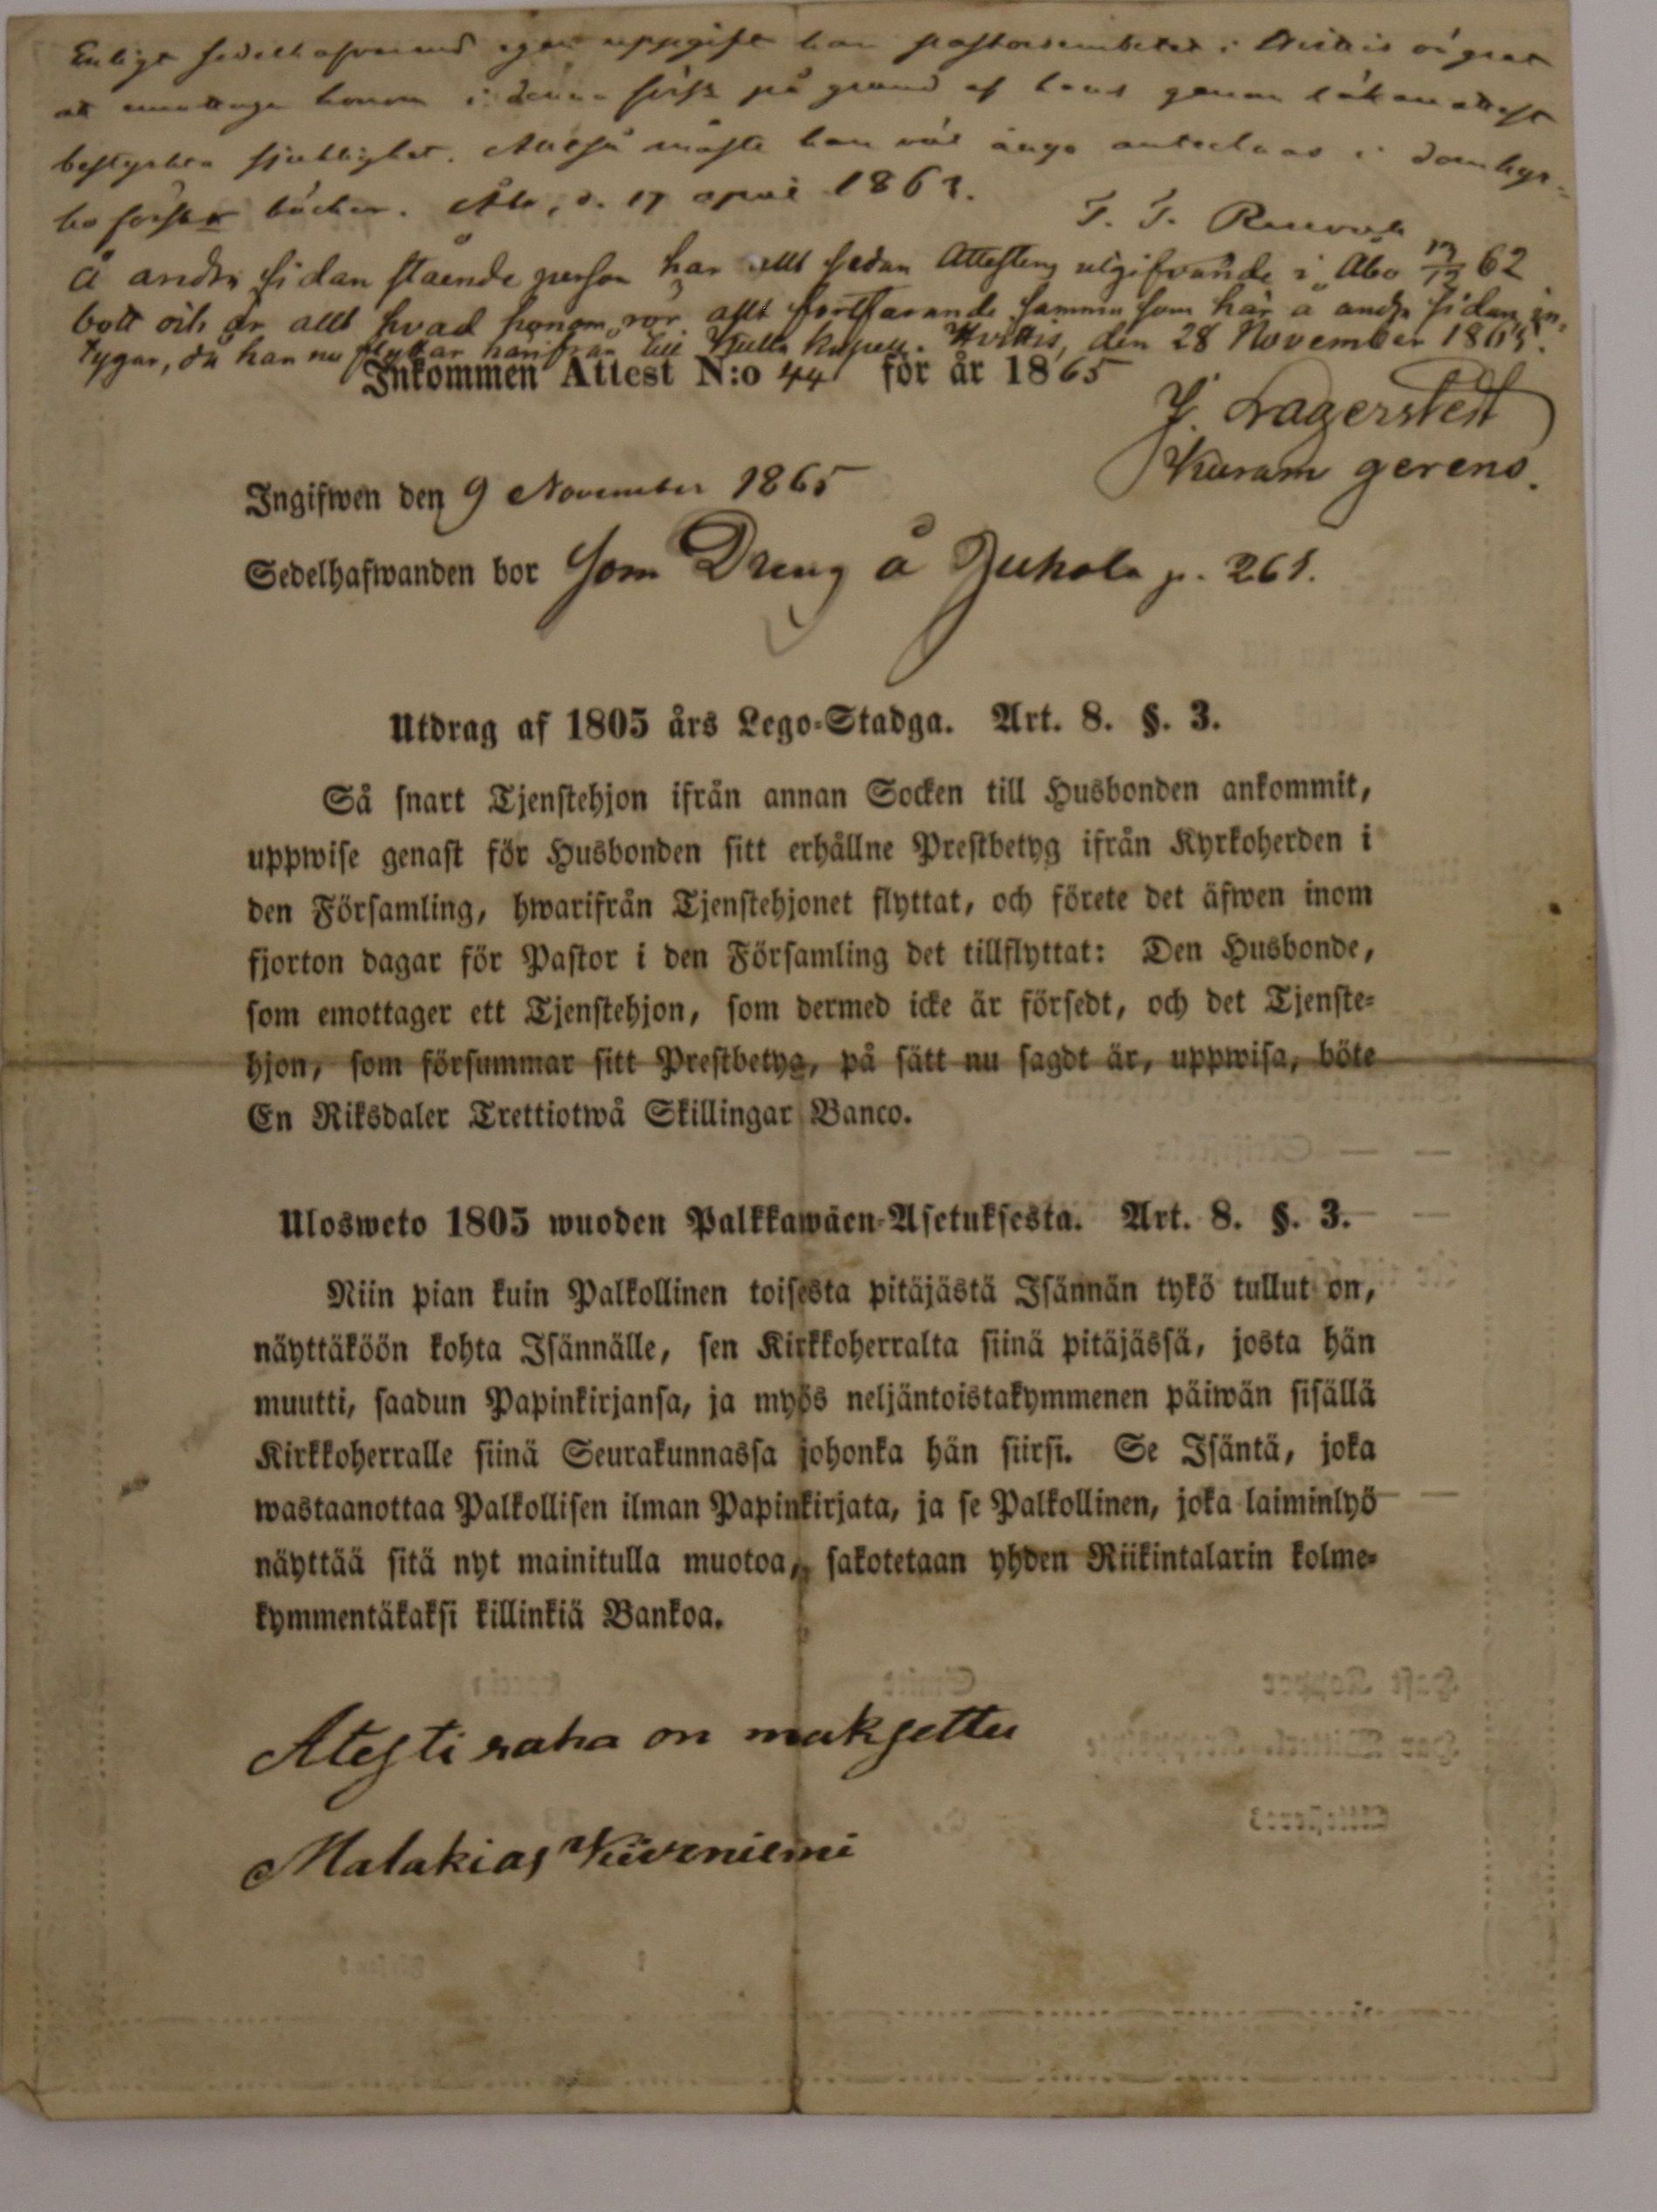 Enligt sedelhafvarens egen uppgift har pastorsembetet i Hvittis vägrat
att emottaga honom i denna förs. på grund af hans genom läkareattest
bestyrkta sjuklighet. Alltså måste han här ånyo antecknas i domkyr-
ko förs:s böcker. Åbo, d. 17 april 1863.
Å andra sidan stående person har allt sedan Attestens utgifvande i Åbo 17/12 62
bott och är allt hvad honom rör allt fortfarande samma som här å andra sidan in-
tygar, då han nu flyttar härifrån till kapell. Hvittis, den 28 November 1865.
J. Lagerstedt
Kuram gerens.
Inkommen Attest N:o 44 för år 1865
Ingifwen den 9 November 1865
Sedelhafwanden bor som Dreng å Juhola p. 261.
Utdrag af 1805 års Lego-Stadga. Art. 8. §. 3.
Så snart Tjenstehjon ifrån annan Socken till Husbonden ankommit,
uppwise genast för Husbonden sitt erhållne Prestbetyg ifrån Kyrkoherden i
den Församling, hwarifrån Tjenstehjonet flyttat, och förete det äfwen inom
fjorton dagar för Pastor i den Församling det tillflyttat: Den Husbonde,
som emottager ett Tjenstehjon, som dermed icke är försedt, och det Tjenste-
hjon, som försummar sitt Prestbetyg, på sätt nu sagdt är, uppwisa, böte
En Riksdaler Trettiotwå Skillingar Banco.
Ulosweto 1805 wuoden Palkkawäen-Asetuksesta. Art. 8. §. 3.
Niin pian kuin Palkollinen toisesta pitäjästä Isännän tykö tullut on,
näyttäköön kohta Isännälle, sen Kirkkoherralta siinä pitäjässä, josta hän
muutti, saadun Papinkirjansa, ja myös neljäntoistakymmenen päiwän sisällä
Kirkkoherralle siinä Seurakunnassa johonka hän siirsi. Se Isäntä, joka
wastaanottaa Palkollisen ilman Papinkirjata, ja se Palkollinen, joka laiminlyö
näyttää sitä nyt mainitulla muotoa, sakotetaan yhden Riikintalarin kolme-
kymmentäkaksi killinkiä Bankoa.
Atesti raha on maksettu
Malakias Kiivzniemi